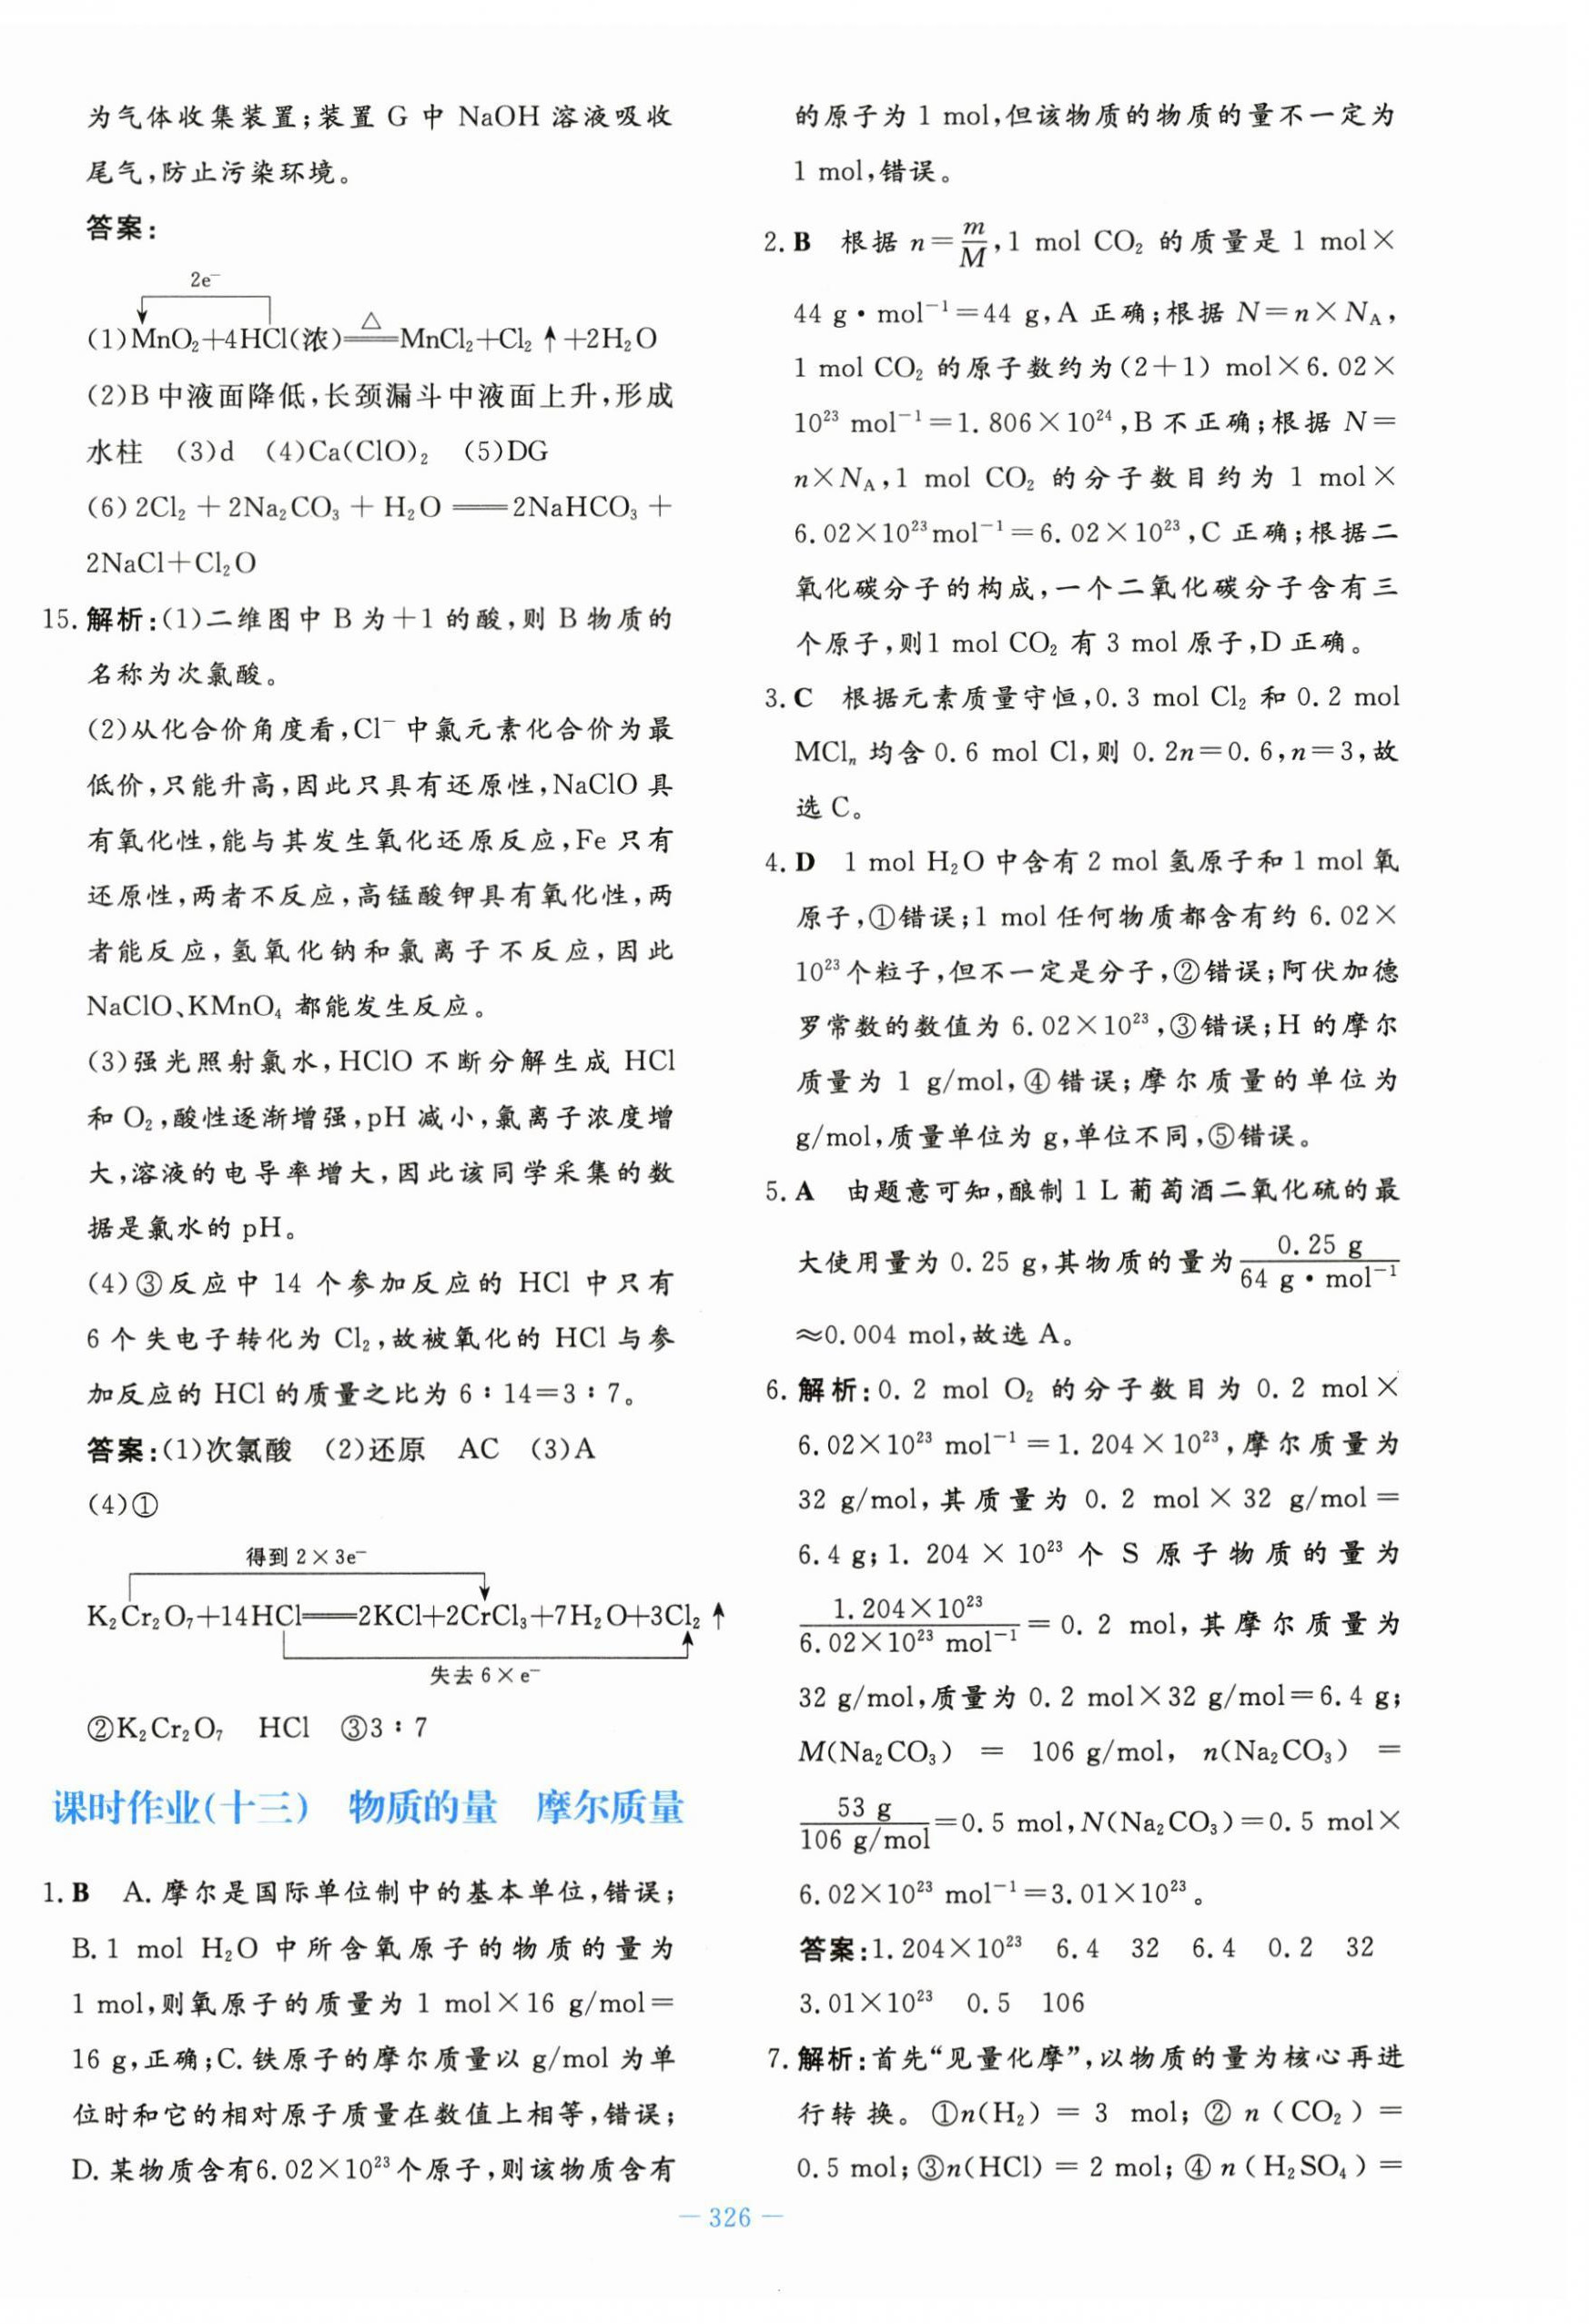 为气体收集装置;装置 G 中 NaOH 溶液吸收
尾气,防止污染环境。
答案:
2e⁻
(1)MnO₂+4HCl(浓)══△══MnCl₂+Cl₂↑+2H₂O
(2)B 中液面降低,长颈漏斗中液面上升,形成
水柱 (3)d (4)Ca(ClO)₂ (5)DG
(6)2Cl₂+2Na₂CO₃+H₂O══2NaHCO₃+
2NaCl+Cl₂O
15. 解析:(1)二维图中 B 为+1 的酸,则 B 物质的
名称为次氯酸。
(2)从化合价角度看,Cl⁻ 中氯元素化合价为最
低价,只能升高,因此只具有还原性,NaClO 具
有氧化性,能与其发生氧化还原反应,Fe 只有
还原性,两者不反应,高锰酸钾具有氧化性,两
者能反应,氢氧化钠和氯离子不反应,因此
NaClO、KMnO₄ 都能发生反应。
(3)强光照射氯水,HClO 不断分解生成 HCl
和 O₂,酸性逐渐增强,pH 减小,氯离子浓度增
大,溶液的电导率增大,因此该同学采集的数
据是氯水的 pH。
(4)③反应中 14 个参加反应的 HCl 中只有
6 个失电子转化为 Cl₂,故被氧化的 HCl 与参
加反应的 HCl 的质量之比为 6∶14=3∶7。
答案:(1)次氯酸 (2)还原 AC (3)A
(4)①
得到 2×3e⁻
K₂Cr₂O₇+14HCl══2KCl+2CrCl₃+7H₂O+3Cl₂↑
失去 6×e⁻
②K₂Cr₂O₇ HCl ③3∶7
课时作业(十三) 物质的量 摩尔质量
1. B A. 摩尔是国际单位制中的基本单位,错误;
B. 1 mol H₂O 中所含氧原子的物质的量为
1 mol,则氧原子的质量为 1 mol×16 g/mol=
16 g,正确;C. 铁原子的摩尔质量以 g/mol 为单
位时和它的相对原子质量在数值上相等,错误;
D. 某物质含有6.02×10²³个原子,则该物质含有
的原子为 1 mol,但该物质的物质的量不一定为
1 mol,错误。
2. B 根据 n=m/M,1 mol CO₂ 的质量是 1 mol×
44 g·mol⁻¹=44 g,A 正确;根据 N=n×N_A,
1 mol CO₂ 的原子数约为(2+1) mol×6.02×
10²³ mol⁻¹=1.806×10²⁴,B 不正确;根据 N=
n×N_A,1 mol CO₂ 的分子数目约为 1 mol×
6.02×10²³mol⁻¹=6.02×10²³,C 正确;根据二
氧化碳分子的构成,一个二氧化碳分子含有三
个原子,则1 mol CO₂ 有 3 mol 原子,D 正确。
3. C 根据元素质量守恒,0.3 mol Cl₂ 和 0.2 mol
MClₙ 均含 0.6 mol Cl,则 0.2n=0.6,n=3,故
选 C。
4. D 1 mol H₂O 中含有 2 mol 氢原子和 1 mol 氧
原子,①错误;1 mol 任何物质都含有约 6.02×
10²³个粒子,但不一定是分子,②错误;阿伏加德
罗常数的数值为 6.02×10²³,③错误;H 的摩尔
质量为 1 g/mol,④错误;摩尔质量的单位为
g/mol,质量单位为 g,单位不同,⑤错误。
5. A 由题意可知,酿制 1 L 葡萄酒二氧化硫的最
大使用量为 0.25 g,其物质的量为 0.25 g/64 g·mol⁻¹
≈0.004 mol,故选 A。
6. 解析:0.2 mol O₂ 的分子数目为 0.2 mol×
6.02×10²³ mol⁻¹=1.204×10²³,摩尔质量为
32 g/mol,其质量为 0.2 mol×32 g/mol=
6.4 g;1.204×10²³个 S 原子物质的量为
1.204×10²³/6.02×10²³ mol⁻¹=0.2 mol,其摩尔质量为
32 g/mol,质量为 0.2 mol×32 g/mol=6.4 g;
M(Na₂CO₃) = 106 g/mol, n(Na₂CO₃) =
53 g/106 g/mol=0.5 mol,N(Na₂CO₃)=0.5 mol×
6.02×10²³ mol⁻¹=3.01×10²³。
答案:1.204×10²³ 6.4 32 6.4 0.2 32
3.01×10²³ 0.5 106
7. 解析:首先“见量化摩”,以物质的量为核心再进
行转换。①n(H₂) = 3 mol;②n(CO₂)=
0.5 mol;③n(HCl) = 2 mol;④n(H₂SO₄)=
— 326 —